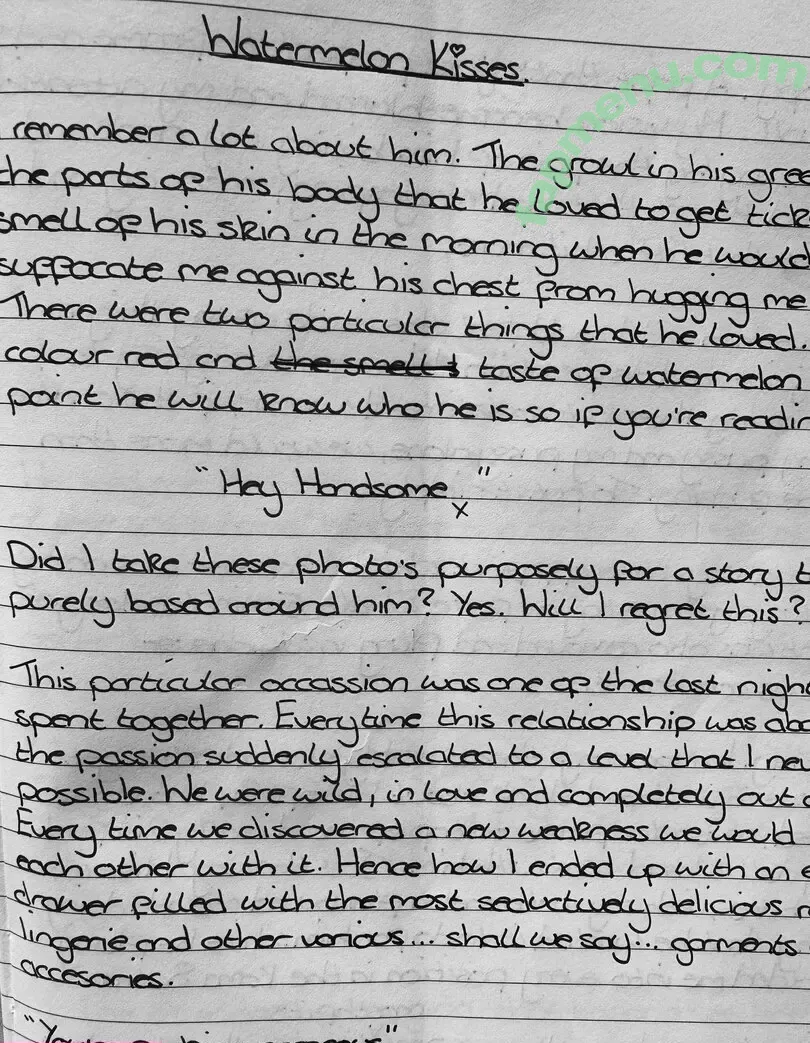 Watermelon Kisses.
fabmenu.com
remember a lot about him. The growl in his gree
the parts of his body that he loved to get tick
smell of his skin in the morning when he would
suffocate me against his chest from hugging me
There were two particular things that he loved.
colour red and the smell taste of watermelon
point he will know who he is so if you're readin
"Hey Handsome x"
Did I take these photo's purposely for a story t
purely based around him? Yes. Will I regret this?
This particular occassion was one of the last nigh
spent together. Everytime this relationship was abo
the passion suddenly escalated to a level that I nev
possible. We were wild, in love and completely out o
Every time we discovered a new weakness we would
each other with it. Hence how I ended up with an e
drawer filled with the most seductively delicious r
lingerie and other various... shall we say... garments
accesories.